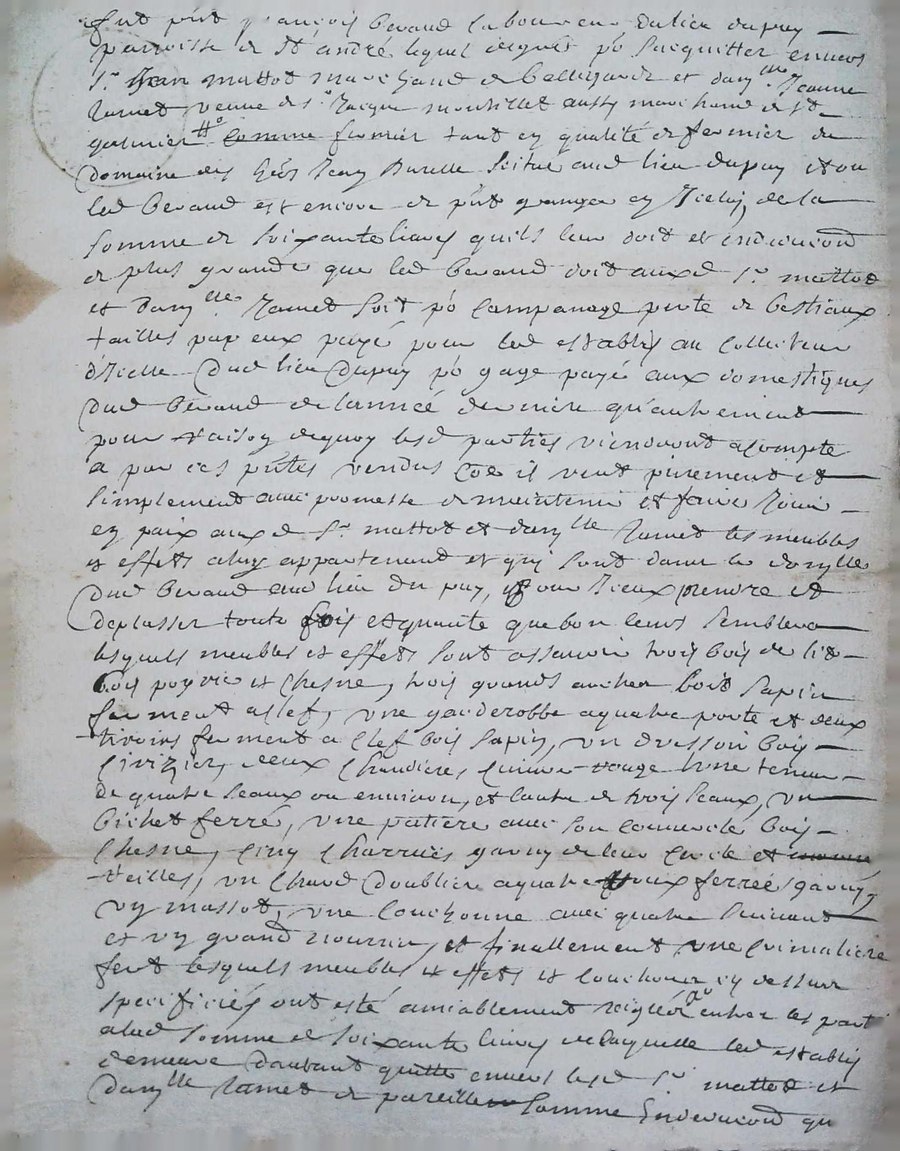 fut pnt françois beraud laboureur du lieu dupuy
parroisse de St andré lequel de gré po sacquitter envers
Sr Jean mattot marchand de bellegarde et damlle Jeanne
Ramet veuve de Sr Jacque aussy marchand de St
galmier comme fermier tant en qualité de fermier du
domaine des hers Jean Burelle scitué aud lieu dupuy et ou
led beraud est encore de pnt granger en Iceluy de la
somme de soixante livres quils leur doit et en deduction
de plus grande que led beraud doit auxd Sr mattot
et damlle Ramet soit po Campanage perte de bestiaux
tailles par eux payé pour led establis au collecteur
d'Icelle dud lieu dupuy po gage payé aux domestiques
dud beraud de lanneé derniere qu'autrement
pour raison dequoy lesd parties viendront a compte
a par ces pntes vendus Coe il vent purement et
simplement avec promesse de maintenir et faire Jouir
en paix auxd Sr mattot et damlle Ramet les meubles
et effets a luy appartenant et qui sont dans le domlle
dud beraud aud lieu du puy, pour Iceux prendre et
deplasser toute fois et quante que bon leurs semblera
lesquels meubles et effets sont assavoir trois bois de lit
bois et Chesne, trois grands archer bois sapin
ferment a clef, une garderobbe a quatre porte et deux
tiroirs ferment a Clef bois sapin, un dressoir bois
Cirizier, deux Chaudieres Cuivre rouge lune tenant
de quatre seaux ou environ, et lautre de trois seaux, un
bichet ferré, une patiere avec son couvercle bois
Chesne, Cinq Charrues garny de leur et
reilles, un Chard doubliere a quatre roux ferreé garny,
un massot, une Couchonne avec quatre suivant
et un grand nourrin, et finallement une Crimaliere
fert lesquels meubles et effets et Couchonne cy dessus
specificiés ont esté amiablement entre les parti
alad somme de soixante livres de laquelle led establis
demeure dautant quitte envers lesd Sr mattot et
damlle Ramet de pareille somme Endeduction qu